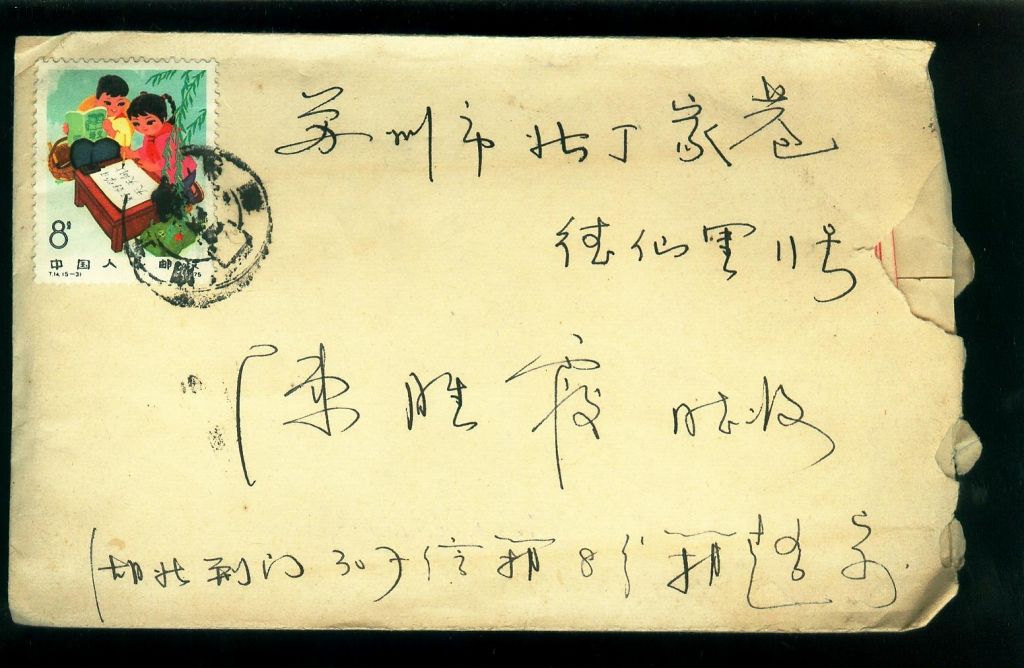 苏州市北丁家巷
德仙里11号
陈胜霞 收
湖北荆门307信箱8分箱赵寄
8分
中国人 邮政
T.14.(5-3)